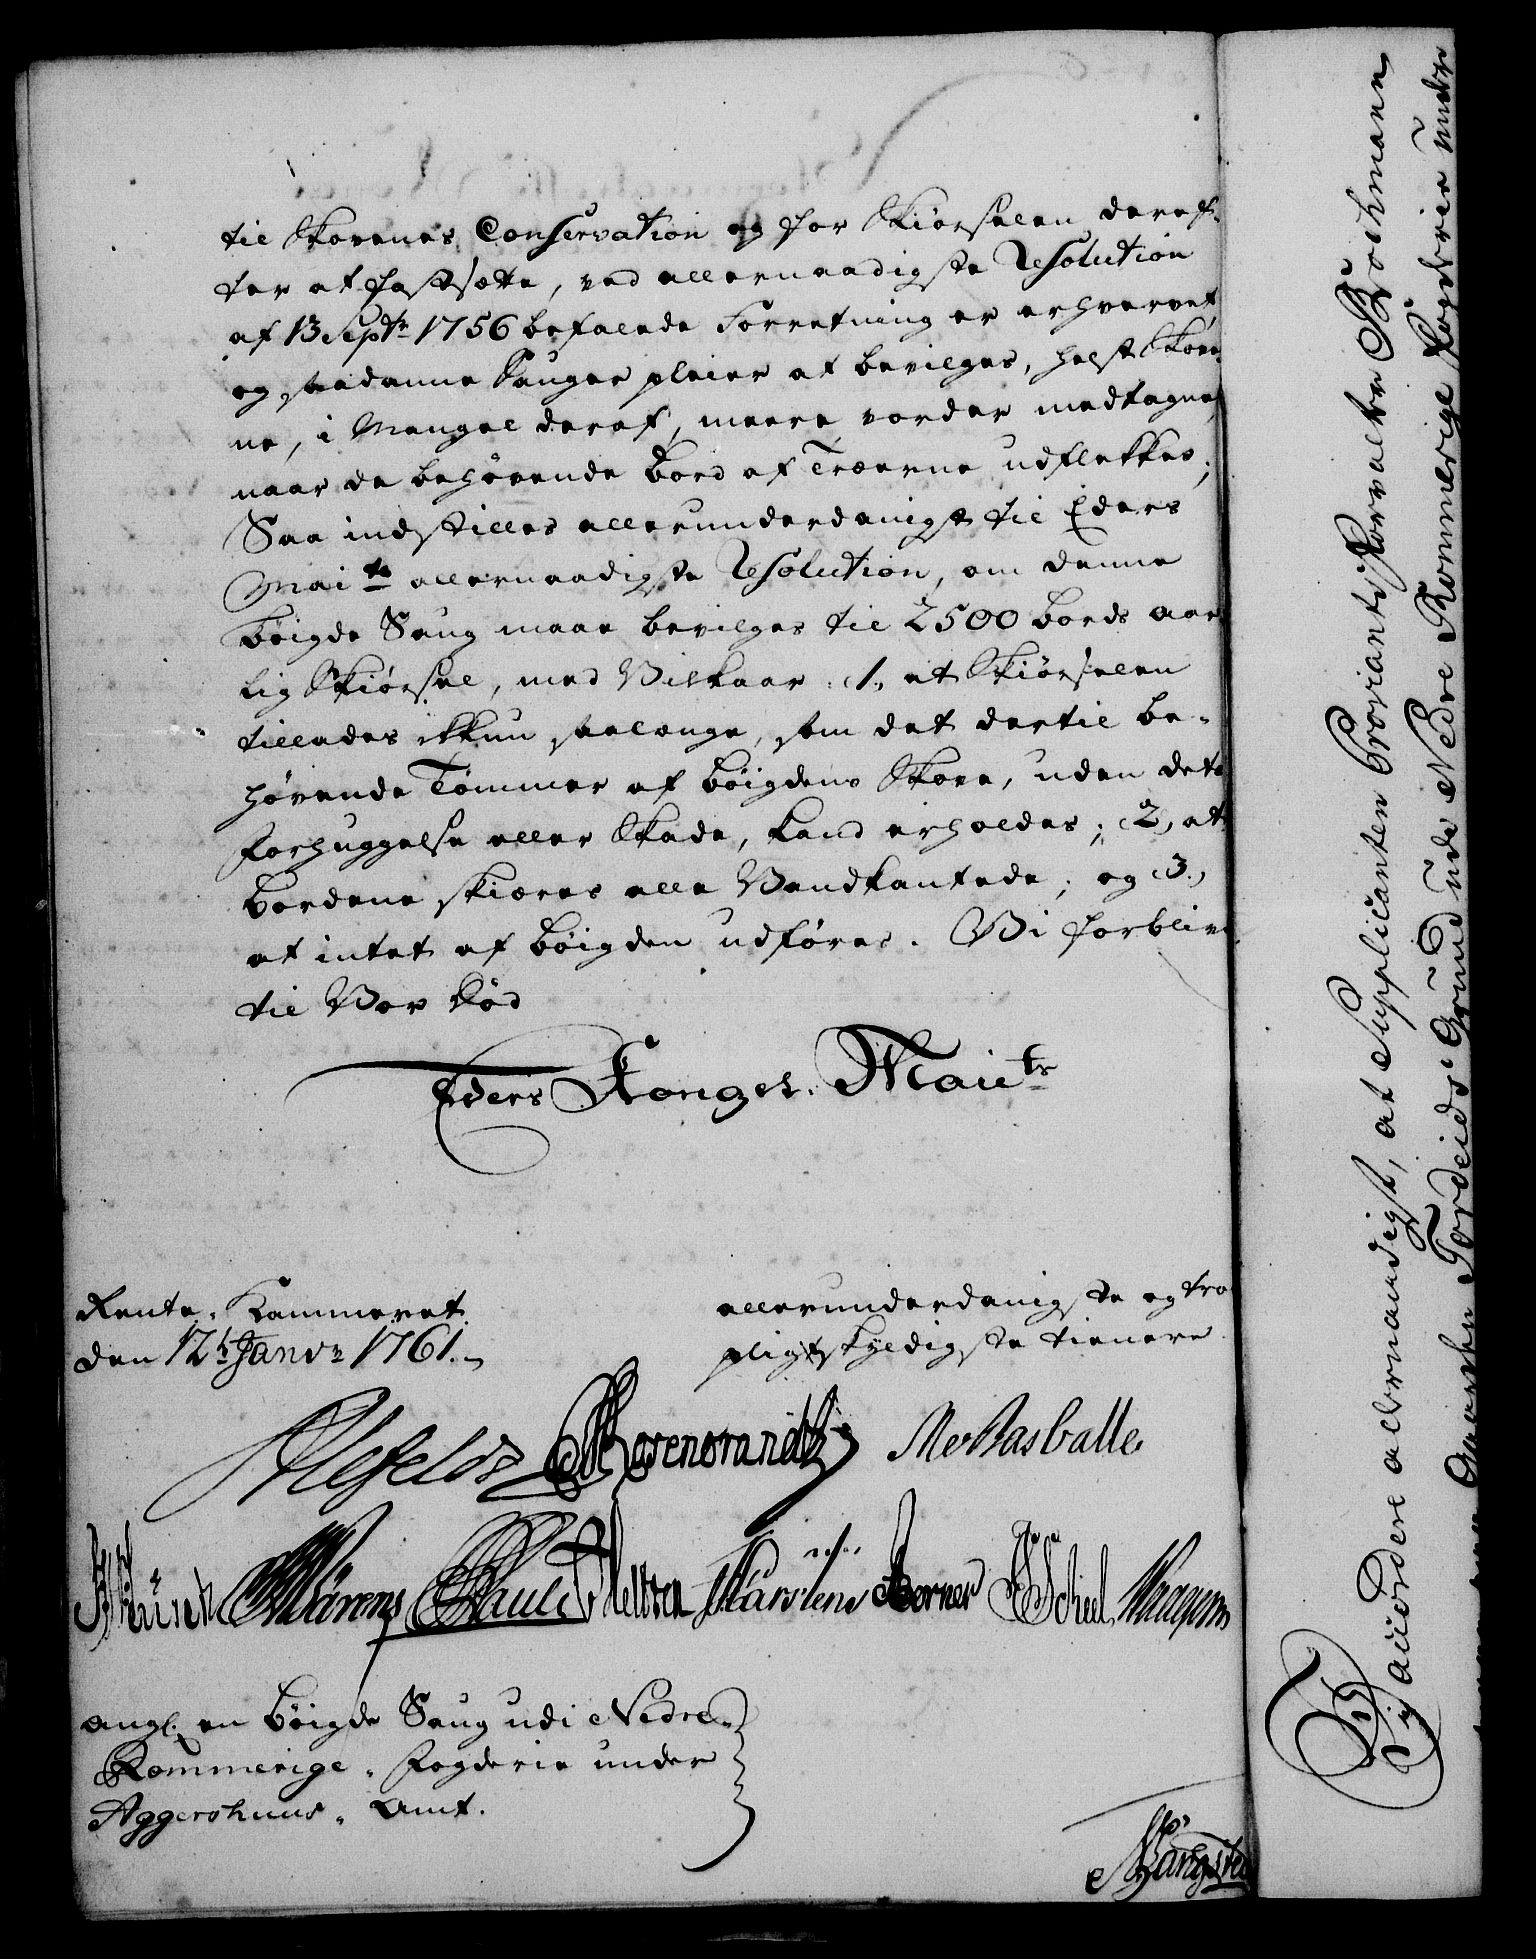 til Skovenes Conservation og for Skiørselen deref-
ter at fastsætte, ved allernaadigste Resolution
af 13 Septr 1756 befalede Forretning er erhvervet,
og saadanne Sauger pleier at bevilges, helst Skove-
ne, i Mangel deraf, meere vorder medtagne,
naar de behøvende Bord af Træerne udflekkes;
Saa indstilles allerunderdanigst til Eders
Maits allernaadigste Resolution, om denne
Bøigde Saug maae bevilges til 2500 Bords aar-
lig Skiørsel, med Vilkaar: 1, at Skiørselen
tillades ikkun saalænge, som det dertil be-
høvende Tømmer af Bøigdens Skove, uden dets
Forhuggelse eller Skade, kand erholdes; 2, at
Bordene skiæres alle Vandkantede; og 3.,
at intet af Bøigden udføres. Vi forblive
til Vor Død
Eders Konges. Maits
Rente-Kammeret
den 12t Janvr 1761.
allerunderdanigste og tro
pligtskyldigste tienere
Alefeldt Rosenbrandtz Massballe
Wärens Pauli Meltzen Karstens Borner Scheel Waagens
angl. en Bøigde Saug udi Nedre
Rommerige-Fogderie under
Aggershuus-Amt.
Bjaudere allernaadigst, at Supplicanten Proviantforvalter Bothmann
Gaarden Tordeids Grund udi Nedre Rommerige Fogderie under